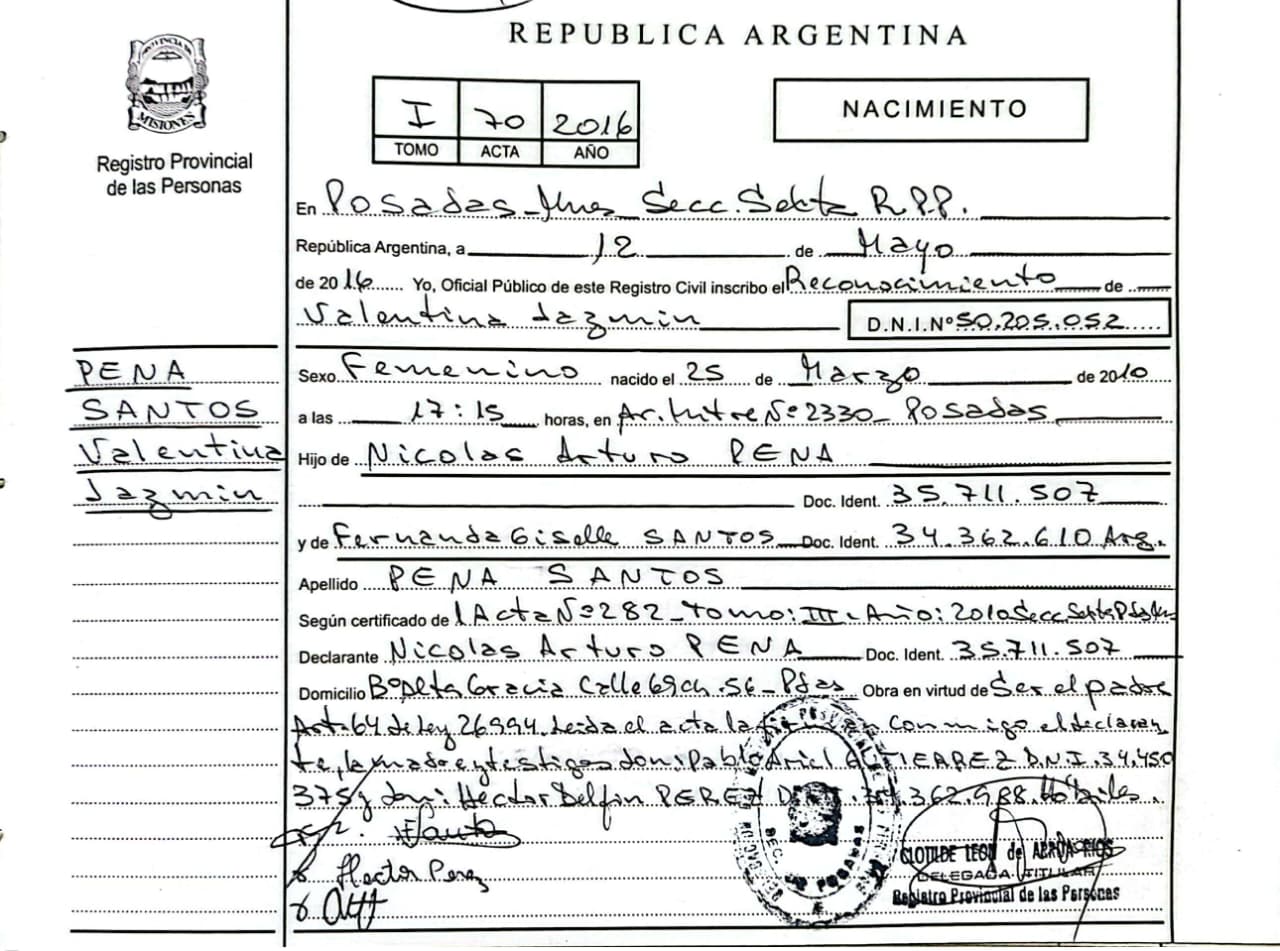 REPUBLICA ARGENTINA
PROVINCIA DE
MISIONES
Registro Provincial
de las Personas
I 70 2016
TOMO ACTA AÑO
NACIMIENTO
En Posadas - Mnes Secc. Sexta R.P.P.
República Argentina, a 12 de Mayo
de 2016 Yo, Oficial Público de este Registro Civil inscribo el Reconocimiento de
Valentina Jazmin D.N.I.Nº 50.205.052
PENA
SANTOS
Valentina
Jazmin
Sexo Femenino nacido el 25 de Marzo de 2010
a las 17:15 horas, en Av. Mitre Nº 2330 - Posadas
Hijo de Nicolas Arturo PENA
Doc. Ident. 35.711.507
y de Fernanda Giselle SANTOS Doc. Ident. 34.362.610 Arg.
Apellido PENA SANTOS
Según certificado de 1 Acta Nº 282 - Tomo: III - Año: 2010 Secc Sexta
Declarante Nicolas Arturo PENA Doc. Ident. 35.711.507
Domicilio Bº Alta Gracia Calle 69 ch. 56 - Pdas Obra en virtud de Ser el padre
Art. 64 de Ley 26.994. Leida el acta la conmigo el declaran
te, la madre y testigos don: Pablo Ariel GUTIERREZ D.N.I. 34.450
375 y don: Héctor Delfin PEREZ 362.988. Hábiles.
Hector Perez
CLOTILDE LEON de
DELEGADA TITULAR
Registro Provincial de las Personas